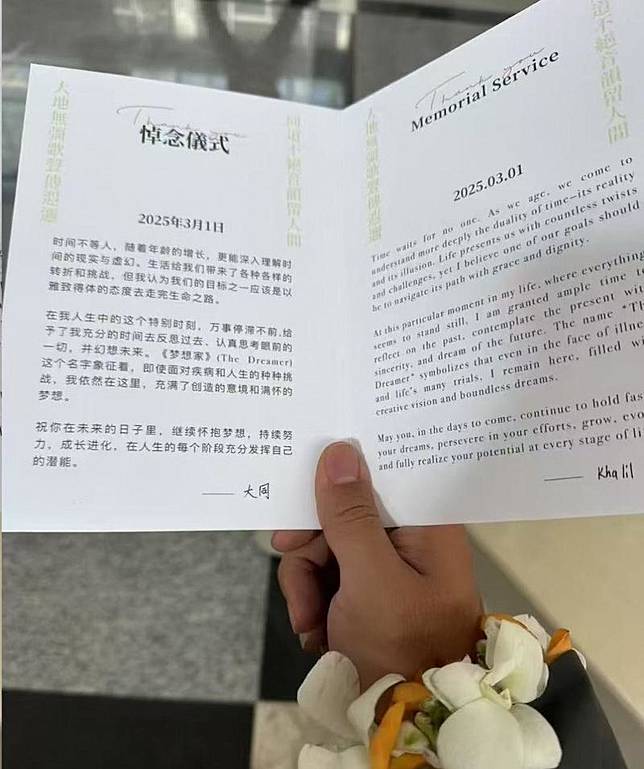 大地無疆歌聲傳遐邇
Thank you
悼念儀式
同道不絕音韻留人間
2025年3月1日
时间不等人，随着年龄的增长，更能深入理解时
间的现实与虚幻。生活给我们带来了各种各样的
转折和挑战，但我认为我们的目标之一应该是以
雅致得体的态度去走完生命之路。
在我人生中的这个特别时刻，万事停滞不前,给
予了我充分的时间去反思过去、认真思考眼前的
一切，并幻想未来。《梦想家》(The Dreamer)
这个名字象征着，即使面对疾病和人生的种种挑
战，我依然在这里，充满了创造的意境和满怀的
梦想。
祝你在未来的日子里，继续怀抱梦想，持续努
力，成长进化，在人生的每个阶段充分发挥自己
的潜能。
—— 大同
大地無疆歌聲傳遐邇
Thank you
Memorial Service
道不絕音韻留人間
2025.03.01
Time waits for no one. As we age, we come to
understand more deeply the duality of time—its reality
and its illusion. Life presents us with countless twists
and challenges, yet I believe one of our goals should
be to navigate its path with grace and dignity.
At this particular moment in my life, where everything
seems to stand still, I am granted ample time to
reflect on the past, contemplate the present wit
sincerity, and dream of the future. The name "Th
Dreamer" symbolizes that even in the face of illne
and life's many trials, I remain here, filled wi
creative vision and boundless dreams.
May you, in the days to come, continue to hold fas
your dreams, persevere in your efforts, grow, evo
and fully realize your potential at every stage of li
—— Khalil